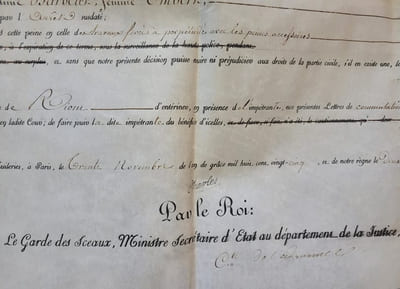 Barbier, femme Imbert,
par l
susdaté;
cette peine en celle des travaux forcés à perpétuité avec les peines accessoires
à l'expiration de ce terme, sous la surveillance de la haute police, pendant
au surplus, et sans que notre présente décision puisse nuire ni préjudicier aux droits de la partie civile, s'il en existe une, le
de Riom d'entériner, en présence de l'impétrante, nos présentes Lettres de commutation
en ladite Cour; de faire jouir la dite impétrante du bénéfice d'icelles,
Tuileries, à Paris, le trente Novembre de l'an de grâce mil huit cent vingt-cinq, et de notre règne le
Charles
Par le Roi:
Le Garde des Sceaux, Ministre Secrétaire d'État au département de la Justice,
Cte de Peyronnet